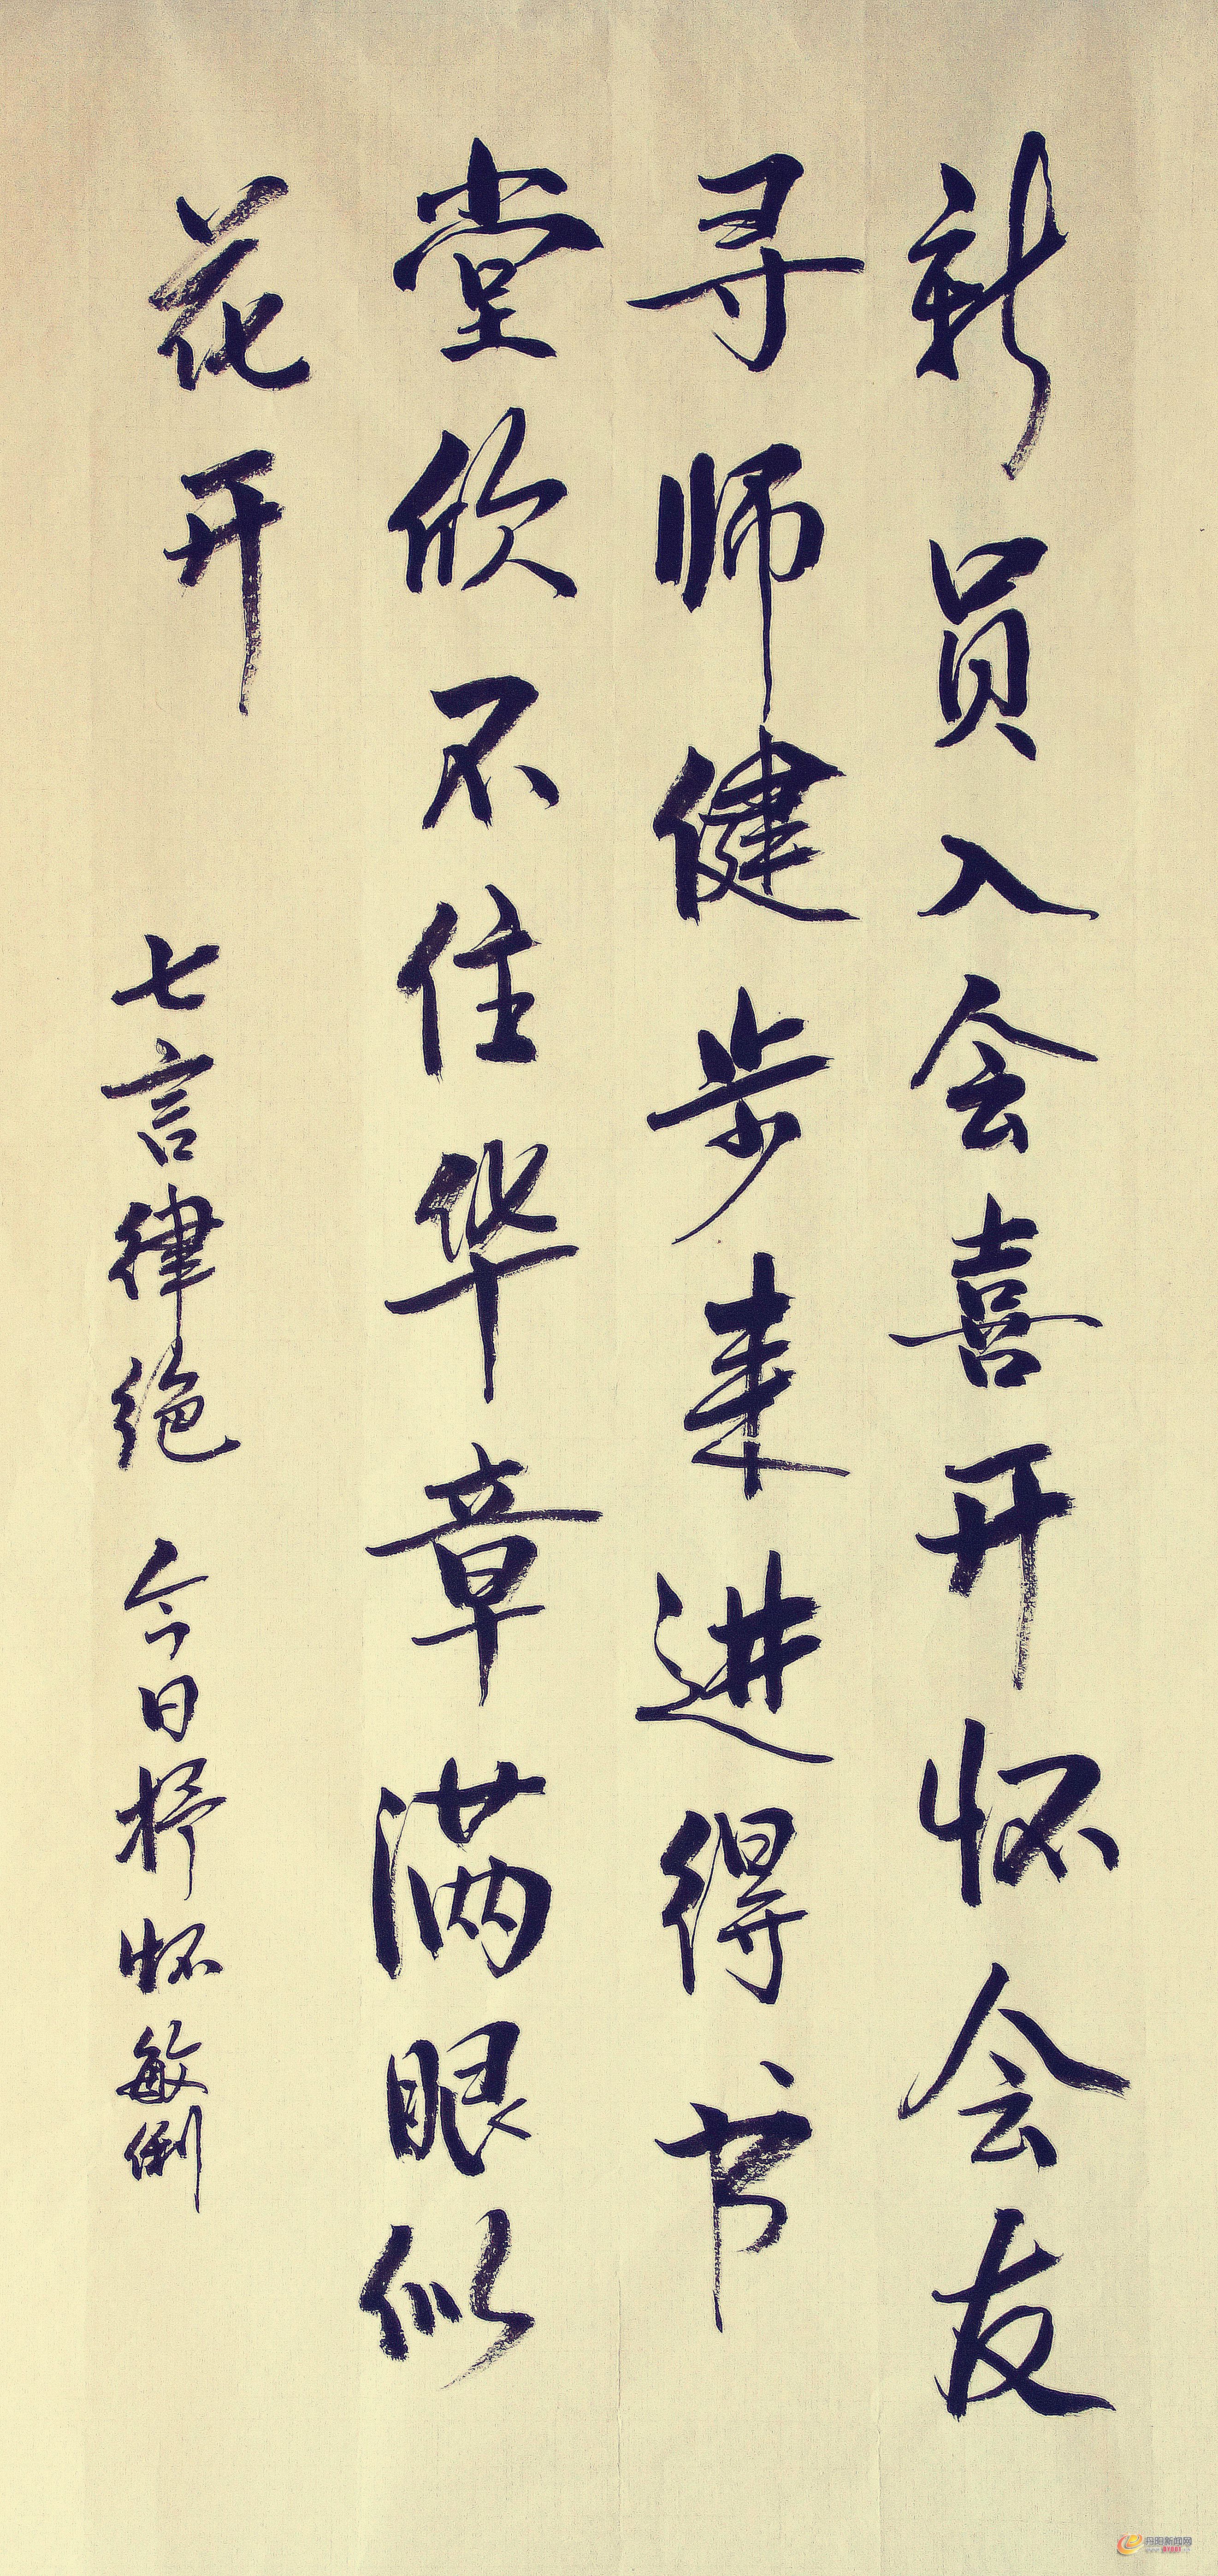 新员入会喜开怀会友
寻师健步来进得书
堂欣不住华章满眼似
花开
七言律绝 今日抒怀 敏俐
丹阳新闻网